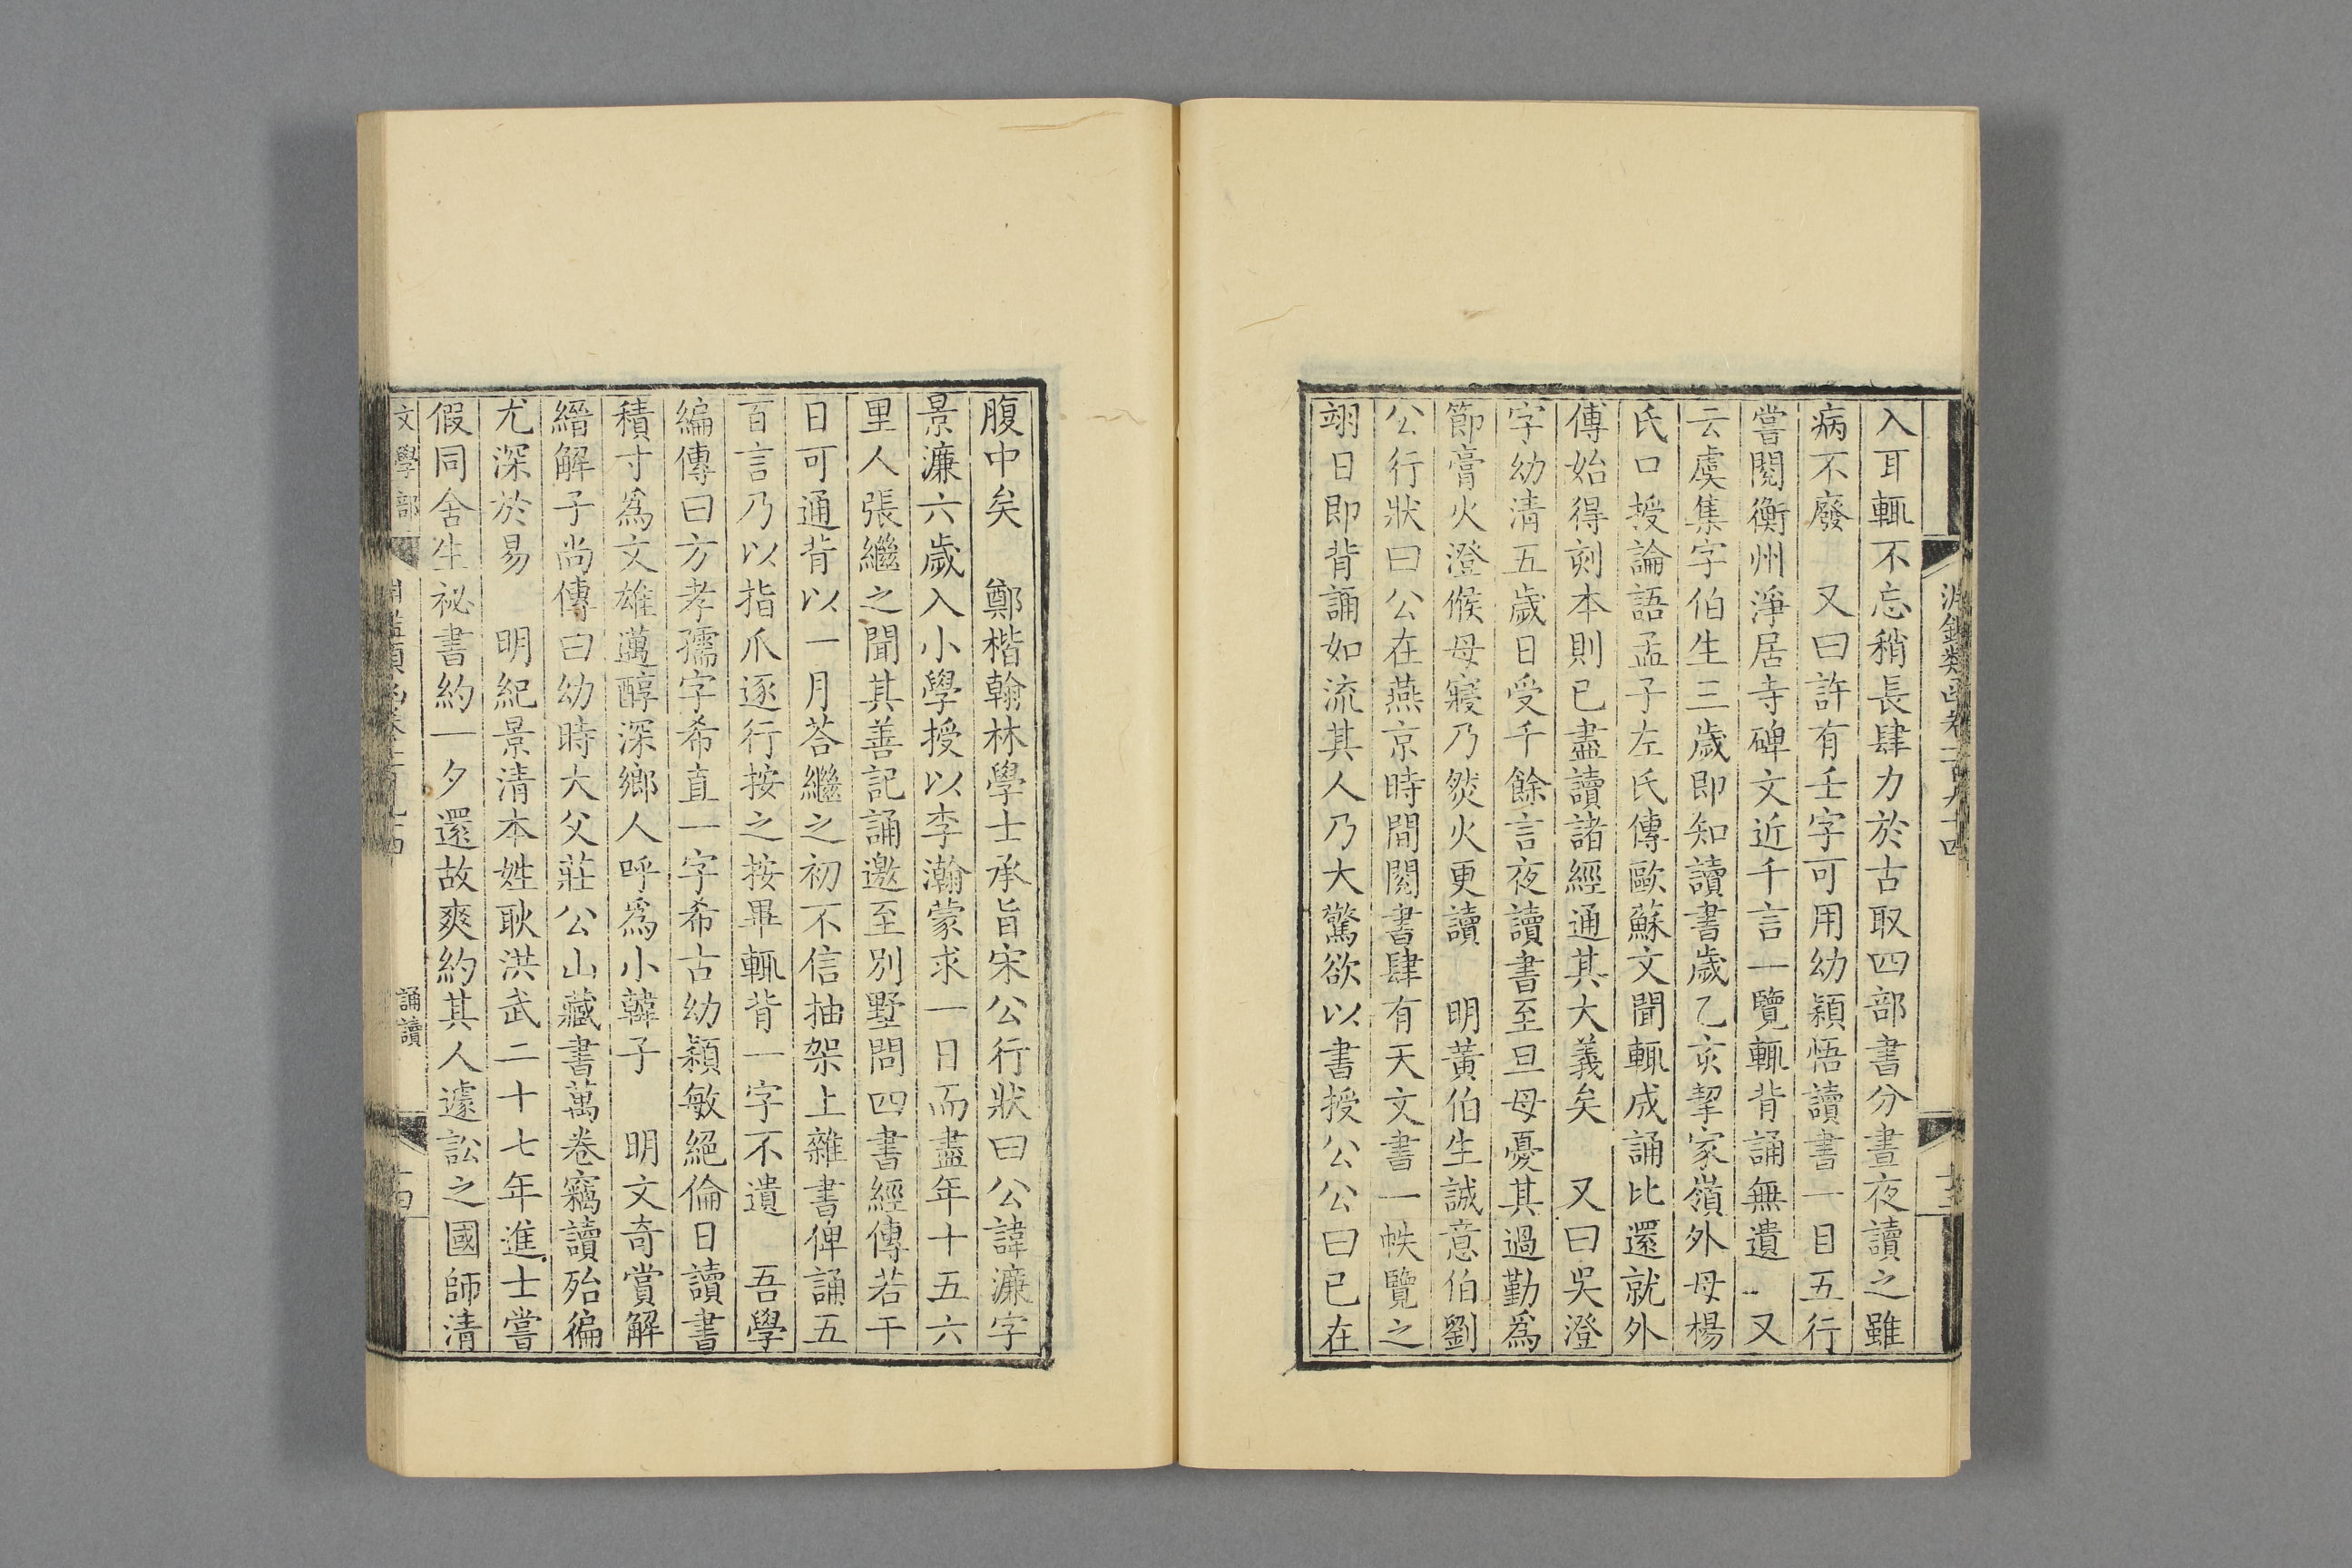 入耳輒不忘稍長肆力於古取四部書分晝夜讀之雖
病不廢　又曰許有壬字可用幼穎悟讀書一目五行
嘗閱衡州淨居寺碑文近千言一覽輒背誦無遺　又
云虞集字伯生三歲即知讀書歲乙亥挈家嶺外母楊
氏口授論語孟子左氏傳歐蘇文聞輒成誦比還就外
傅始得刻本則已盡讀諸經通其大義矣　又曰吳澄
字幼清五歲日受千餘言夜讀書至旦母憂其過勤爲
節膏火澄候母寢乃爇火更讀　明黃伯生誠意伯劉
公行狀曰公在燕京時間閱書肆有天文書一帙覽之
翊日即背誦如流其人乃大驚欲以書授公公曰已在
腹中矣　鄭楷翰林學士承旨宋公行狀曰公諱濂字
景濂六歲入小學授以李瀚蒙求一日而盡年十五六
里人張繼之聞其善記誦邀至別墅問四書經傳若干
日可通背以一月荅繼之初不信抽架上雜書俾誦五
百言乃以指爪逐行按之按畢輒背一字不遺　吾學
編傳曰方孝孺字希直一字希古幼穎敏絕倫日讀書
積寸爲文雄邁醇深鄉人呼爲小韓子　明文奇賞解
縉解子尚傳曰幼時大父莊公山藏書萬卷竊讀殆徧
尤深於易　明紀景清本姓耿洪武二十七年進士嘗
假同舍生祕書約一夕還故爽約其人遽訟之國師清
文學部
誦讀